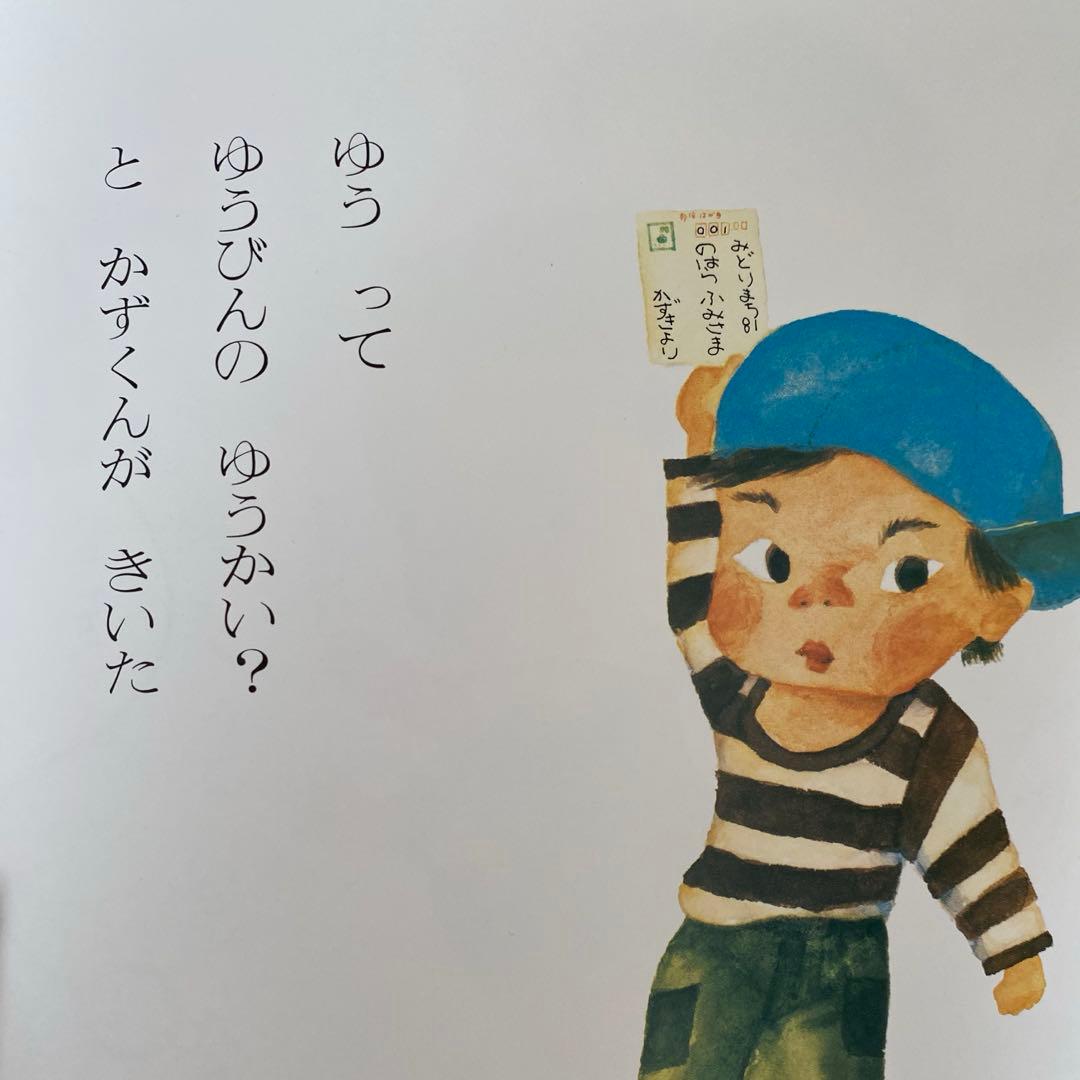 ゆう って
ゆうびんの ゆうかい？
と かずくんが きいた
郵便はがき
001
みどりまち81
のはら ふみさま
かずきより